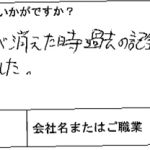 いかがですか？
が消えた時過去の記
した。
会社名またはご職業